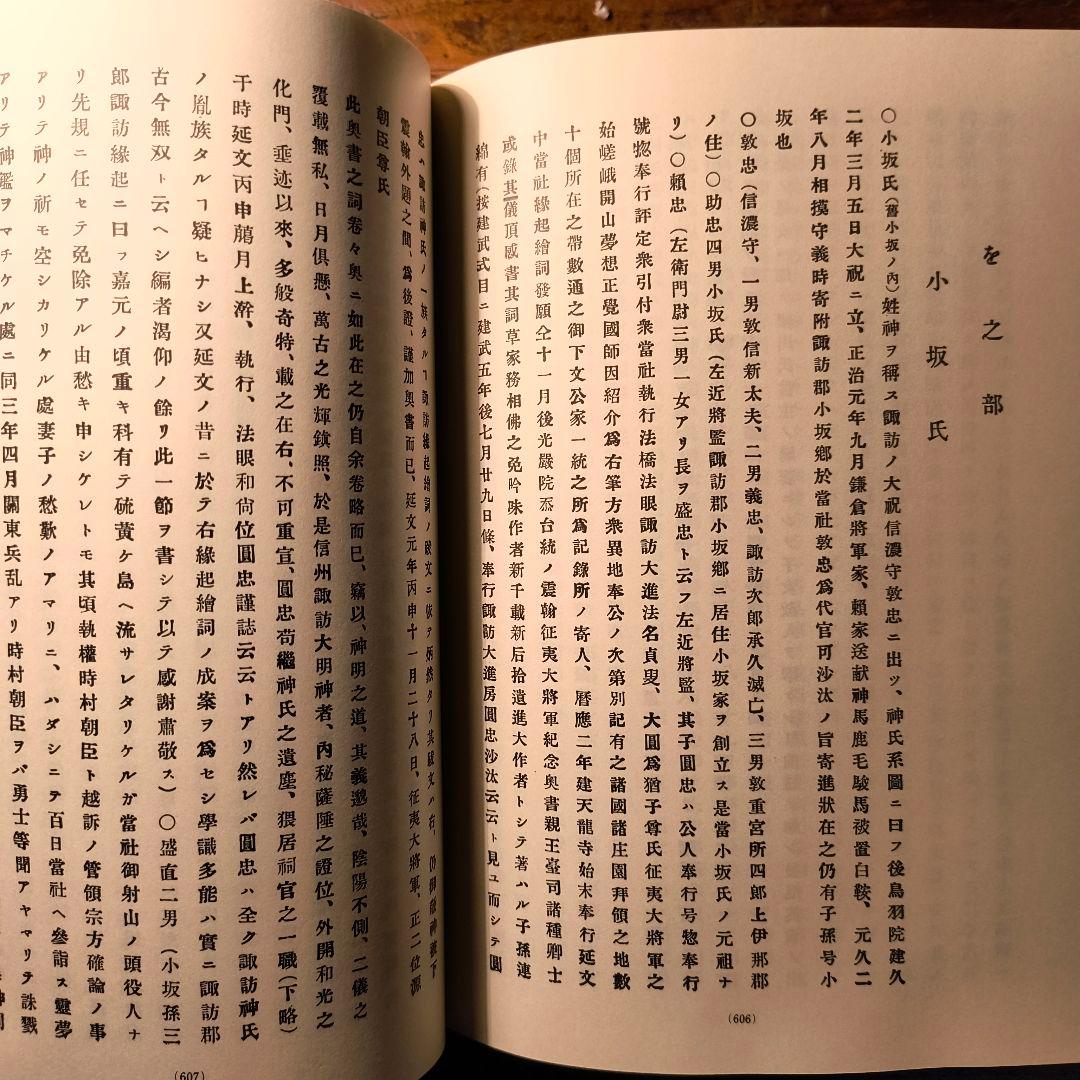 を之部
小坂氏
○小坂氏(舊小坂ノ內)姓神ヲ稱ス諏訪ノ大祝信濃守敦忠ニ出ツ、神氏系圖ニ曰フ後鳥羽院建久
二年三月五日大祝ニ立、正治元年九月鎌倉將軍家、賴家送献神馬鹿毛駿馬被置白鞍、元久二
年八月相摸守義時寄附諏訪郡小坂鄕於當社敦忠爲代官可沙汰ノ旨寄進狀在之仍有子孫号小
坂也
○敦忠(信濃守、一男敦信新太夫、二男義忠、諏訪次郎承久滅亡、三男敦重宮所四郎上伊那郡
ノ住)○助忠四男小坂氏(左近將監諏訪郡小坂鄕ニ居住小坂家ヲ創立ス是當小坂氏ノ元祖ナ
リ)○賴忠(左衛門尉三男一女アリ長ヲ盛忠ト云フ左近將監、其子圓忠ハ公人奉行号惣奉行
號惣奉行評定衆引付衆當社執行法橋法眼諏訪大進法名貞叟、大圓爲猶子尊氏征夷大將軍之
始嵯峨開山夢想正覺國師因紹介爲右筆方衆異地奉公ノ次第別記有之諸國諸庄園拜領之地數
十個所在之帶數通之御下文公家一統之所爲記錄所ノ寄人、曆應二年建天龍寺始末奉行延文
中當社緣起繪詞發願仝十一月後光嚴院忝台統ノ震翰征夷大將軍紀念奥書親王臺司諸種卿士
或錄其儀頂感書其詞草家務相佛之免吟味作者新千載新后拾遺進大作者トシテ著ハル子孫連
綿有(按建武式目ニ建武五年後七月廿九日條、奉行諏訪大進房圓忠沙汰云云ト見ユ而シテ圓
(606)
忠ハ諏訪神氏ノ一族タルヿ諏訪緣起繪詞ノ跋文ニ依テ炳然タリ其跋文ハ右、
震翰外題之間、爲後證、謹加奥書而已、延文元年丙申十一月二十八日、征夷大將軍、正二位源
朝臣尊氏
此奥書之詞卷々奥ニ如此在之仍自余卷略而已、竊以、神明之道、其義邈哉、陰陽不側、二儀之
覆載無私、日月俱懸、萬古之光輝鎮照、於是信州諏訪大明神者、內秘薩埵之證位、外開和光之
化門、垂迹以來、多般奇特、載之在右、不可重宣、圓忠苟繼神氏之遺塵、猥居祠官之一職(下略)
于時延文丙申蔦月上澣、執行、法眼和尙位圓忠謹誌云云トアリ然レバ圓忠ハ全ク諏訪神氏
ノ胤族タルヿ疑ヒナシ又延文ノ昔ニ於テ右緣起繪詞ノ成案ヲ爲セシ學識多能ハ實ニ諏訪郡
古今無双ト云ヘシ編者渴仰ノ餘リ此一節ヲ書シテ以テ感謝肅敬ス)○盛直二男(小坂孫三
郎諏訪緣起ニ曰フ嘉元ノ頃重キ科有テ硫黄ケ島ヘ流サレタリケルガ當社御射山ノ頭役人ナ
リ先規ニ任セテ免除アル由愁キ申シケレトモ其頃執權時村朝臣ト越訴ノ管領宗方確論ノ事
アリテ神ノ祈モ空シカリケル處妻子ノ愁歎ノアマリニ、ハダシニテ百日當社ヘ叅詣ス靈夢
アリテ神鑑ヲマチケル處ニ同三年四月關東兵乱アリ時村朝臣ヲバ勇士等聞アヤマリテ誅戮
(607)